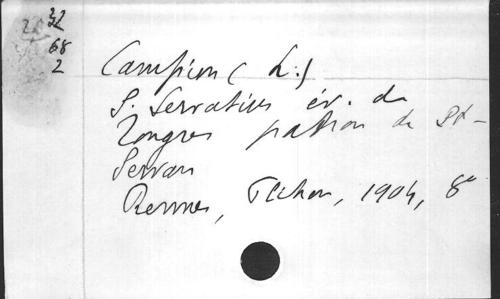 32
68
2
Campion (L.)
S. Servatius év. de
Tongres patron de St-
Servan
Rennes, 1904, 8°